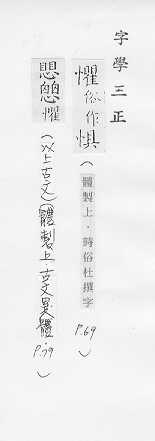 字學三正
懼俗作惧（體製上．時俗杜撰字 P.69）
愳懼（以上古文）（體製上古文異體 P.79）